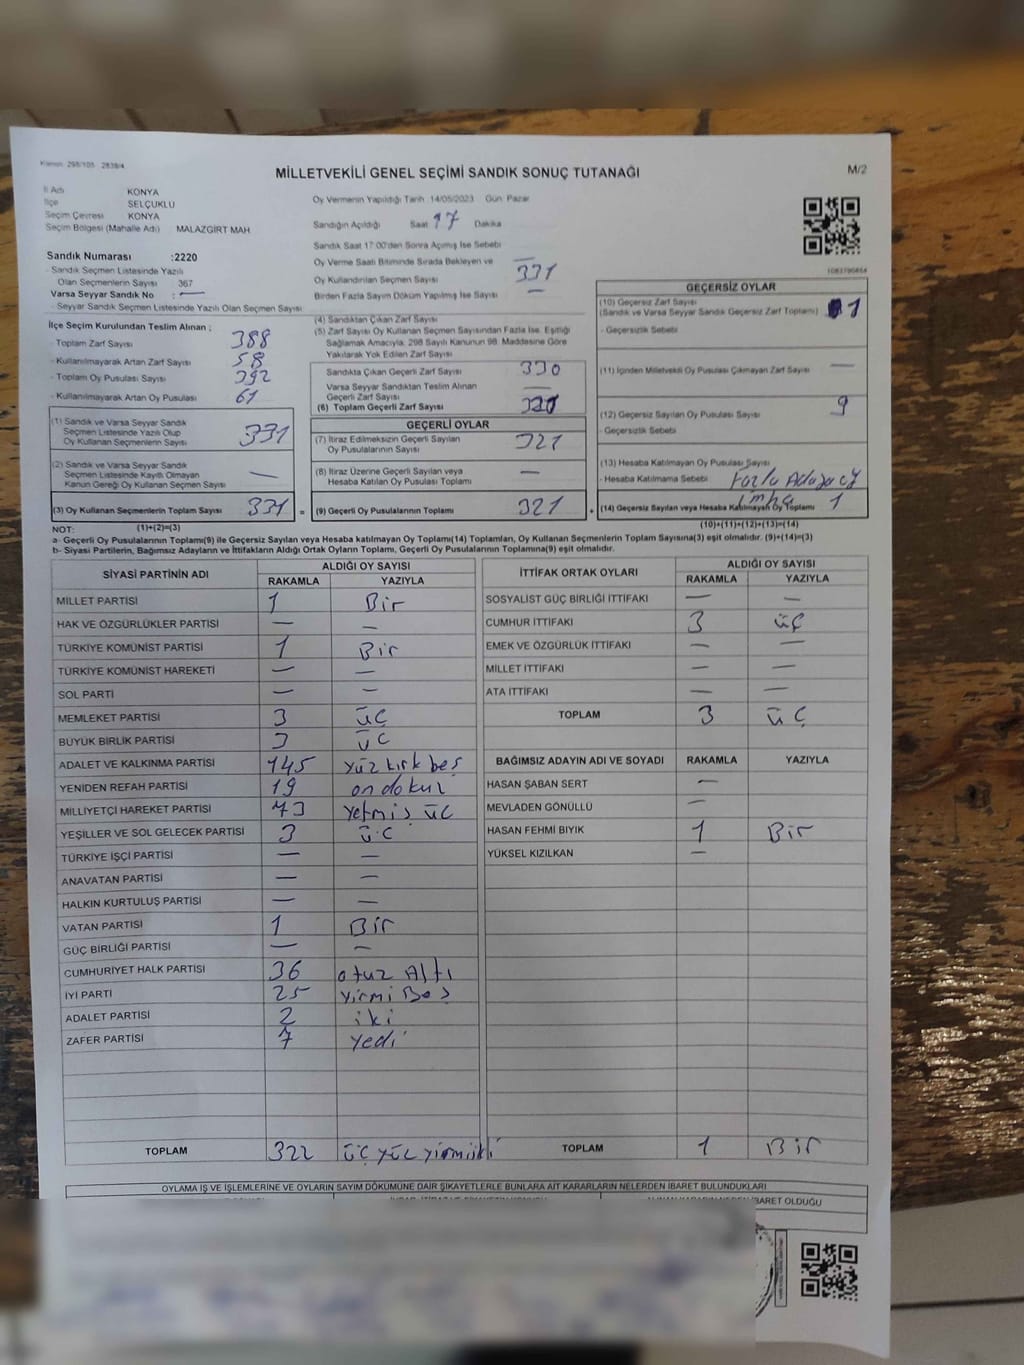 Kanun: 298/105 2839/4
MİLLETVEKİLİ GENEL SEÇİMİ SANDIK SONUÇ TUTANAĞI
M/2
İl Adı KONYA
İlçe SELÇUKLU
Seçim Çevresi KONYA
Seçim Bölgesi (Mahalle Adı) MALAZGİRT MAH
Sandık Numarası :2220
- Sandık Seçmen Listesinde Yazılı
Olan Seçmenlerin Sayısı 367
Varsa Seyyar Sandık No : —
- Seyyar Sandık Seçmen Listesinde Yazılı Olan Seçmen Sayısı
Oy Vermenin Yapıldığı Tarih 14/05/2023 Gün Pazar
Sandığın Açıldığı Saat 17 Dakika
Sandık Saat 17:00'den Sonra Açılmış İse Sebebi
Oy Verme Saati Bitiminde Sırada Bekleyen ve —
Oy Kullandırılan Seçmen Sayısı 331
Birden Fazla Sayım Döküm Yapılmış İse Sayısı —
İlçe Seçim Kurulundan Teslim Alınan ;
- Toplam Zarf Sayısı 388
- Kullanılmayarak Artan Zarf Sayısı 58
- Toplam Oy Pusulası Sayısı 392
- Kullanılmayarak Artan Oy Pusulası 61
(1) Sandık ve Varsa Seyyar Sandık
Seçmen Listesinde Yazılı Olup
Oy Kullanan Seçmenlerin Sayısı 331
(2) Sandık ve Varsa Seyyar Sandık
Seçmen Listesinde Kayıtlı Olmayan
Kanun Gereği Oy Kullanan Seçmen Sayısı —
(3) Oy Kullanan Seçmenlerin Toplam Sayısı 331 =
(4) Sandıktan Çıkan Zarf Sayısı
(5) Zarf Sayısı Oy Kullanan Seçmen Sayısından Fazla İse, Eşitliği
Sağlamak Amacıyla, 298 Sayılı Kanunun 98. Maddesine Göre
Yakılarak Yok Edilen Zarf Sayısı
Sandıkta Çıkan Geçerli Zarf Sayısı 330
Varsa Seyyar Sandıktan Teslim Alınan
Geçerli Zarf Sayısı —
(6) Toplam Geçerli Zarf Sayısı
GEÇERLİ OYLAR
(7) İtiraz Edilmeksizin Geçerli Sayılan
Oy Pusulalarının Sayısı 321
(8) İtiraz Üzerine Geçerli Sayılan veya
Hesaba Katılan Oy Pusulası Toplamı —
(9) Geçerli Oy Pusulalarının Toplamı 321 +
GEÇERSİZ OYLAR
(10) Geçersiz Zarf Sayısı
(Sandık ve Varsa Seyyar Sandık Geçersiz Zarf Toplamı) 1
- Geçersizlik Sebebi
(11) İçinden Milletvekili Oy Pusulası Çıkmayan Zarf Sayısı —
(12) Geçersiz Sayılan Oy Pusulası Sayısı 9
- Geçersizlik Sebebi
(13) Hesaba Katılmayan Oy Pusulası Sayısı
- Hesaba Katılmama Sebebi Fazla
imha
(14) Geçersiz Sayılan veya Hesaba Katılmayan Oy Toplamı 1
NOT: (1)+(2)=(3) (10)+(11)+(12)+(13)=(14)
a- Geçerli Oy Pusulalarının Toplamı(9) ile Geçersiz Sayılan veya Hesaba katılmayan Oy Toplamı(14) Toplamları, Oy Kullanan Seçmenlerin Toplam Sayısına(3) eşit olmalıdır. (9)+(14)=(3)
b- Siyasi Partilerin, Bağımsız Adayların ve İttifakların Aldığı Ortak Oyların Toplamı, Geçerli Oy Pusulalarının Toplamına(9) eşit olmalıdır.
SİYASİ PARTİNİN ADI ALDIĞI OY SAYISI
RAKAMLA YAZIYLA
MİLLET PARTİSİ 1 Bir
HAK VE ÖZGÜRLÜKLER PARTİSİ — —
TÜRKİYE KOMÜNİST PARTİSİ 1 Bir
TÜRKİYE KOMÜNİST HAREKETİ — —
SOL PARTİ — —
MEMLEKET PARTİSİ 3 üç
BÜYÜK BİRLİK PARTİSİ 3 üç
ADALET VE KALKINMA PARTİSİ 145 yüz kırk beş
YENİDEN REFAH PARTİSİ 19 on dokuz
MİLLİYETÇİ HAREKET PARTİSİ 73 yetmiş üç
YEŞİLLER VE SOL GELECEK PARTİSİ 3 üç
TÜRKİYE İŞÇİ PARTİSİ — —
ANAVATAN PARTİSİ — —
HALKIN KURTULUŞ PARTİSİ — —
VATAN PARTİSİ 1 Bir
GÜÇ BİRLİĞİ PARTİSİ — —
CUMHURİYET HALK PARTİSİ 36 otuz Altı
İYİ PARTİ 25 yirmi Beş
ADALET PARTİSİ 2 iki
ZAFER PARTİSİ 7 yedi
TOPLAM 322 üç yüz yirmi iki
İTTİFAK ORTAK OYLARI ALDIĞI OY SAYISI
RAKAMLA YAZIYLA
SOSYALİST GÜÇ BİRLİĞİ İTTİFAKI — —
CUMHUR İTTİFAKI 3 üç
EMEK VE ÖZGÜRLÜK İTTİFAKI — —
MİLLET İTTİFAKI — —
ATA İTTİFAKI — —
TOPLAM 3 üç
BAĞIMSIZ ADAYIN ADI VE SOYADI RAKAMLA YAZIYLA
HASAN ŞABAN SERT —
MEVLADEN GÖNÜLLÜ —
HASAN FEHMİ BIYIK 1 Bir
YÜKSEL KIZILKAN —
TOPLAM 1 Bir
OYLAMA İŞ VE İŞLEMLERİNE VE OYLARIN SAYIM DÖKÜMÜNE DAİR ŞİKAYETLERLE BUNLARA AİT KARARLARIN NELERDEN İBARET BULUNDUKLARI
İBARET OLDUĞU